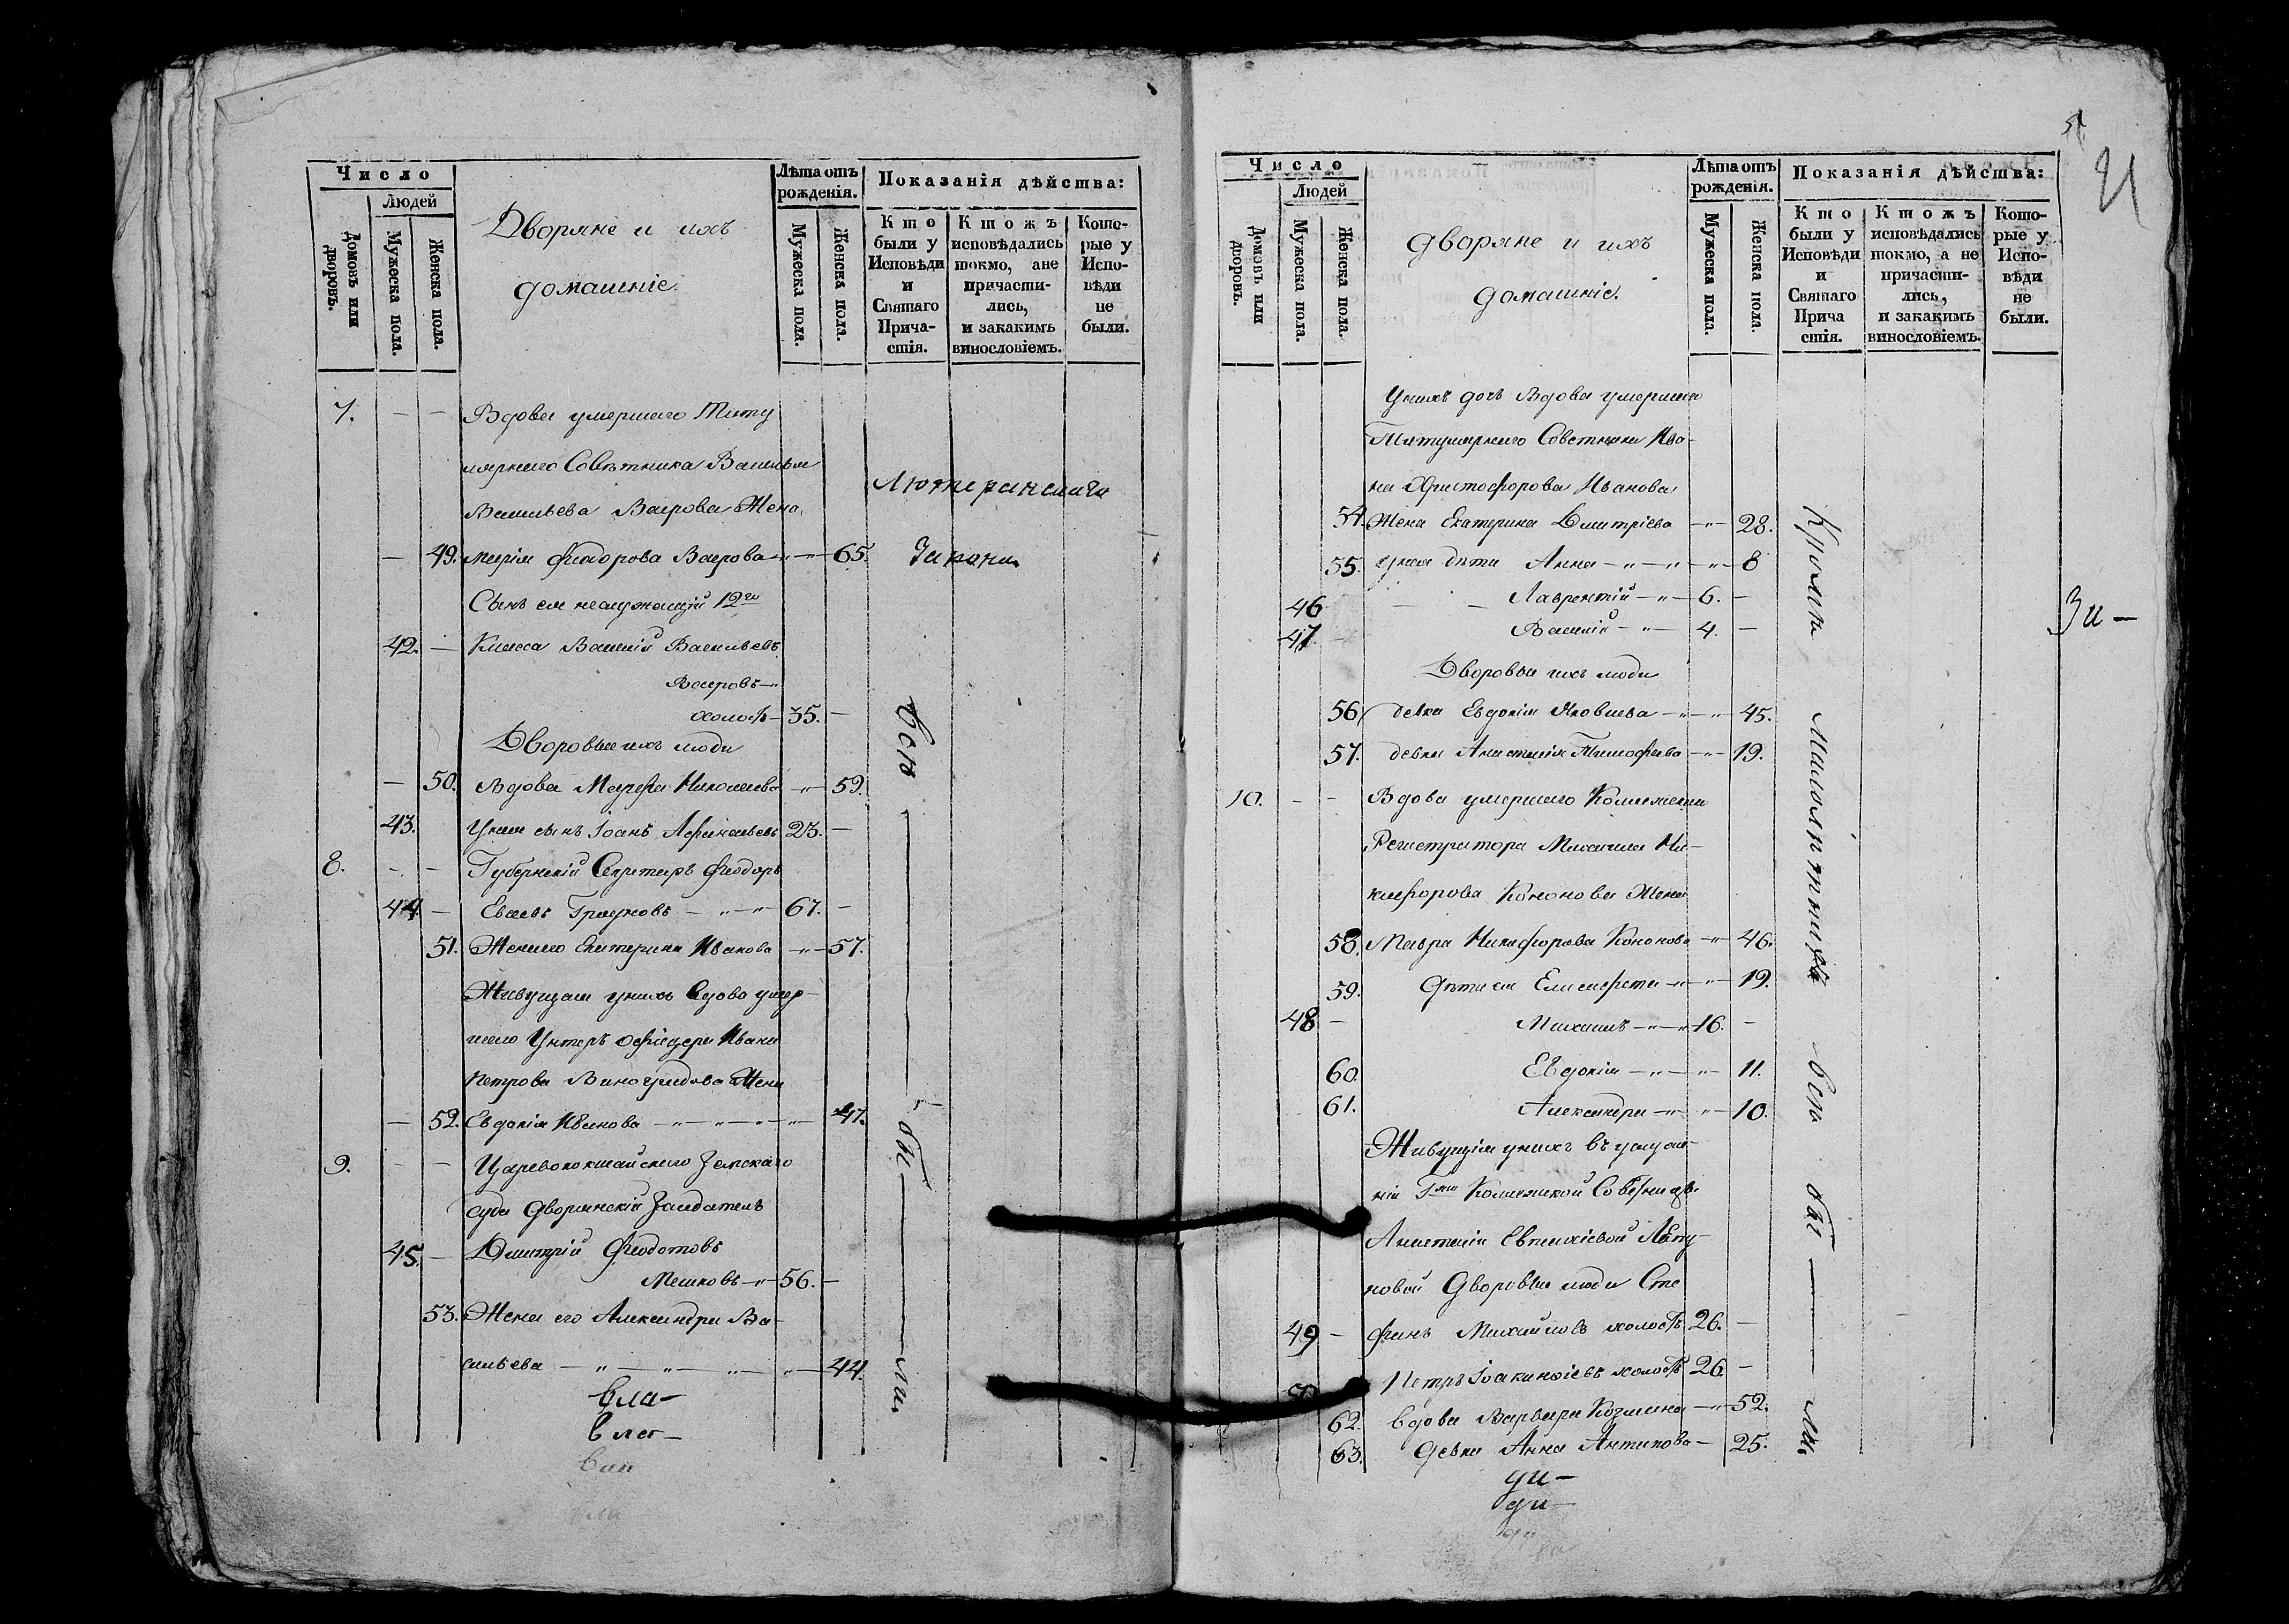 Число
Людей
Домовъ или дворовъ.
Мужеска пола.
Женска пола.
Дворяне и ихъ
домашніе.
Лѣта отъ рожденія.
Мужеска пола.
Женска пола.
Показанія дѣйства:
Кто были у Исповѣди и Святаго Прича-стія.
Ктожъ исповѣдались токмо, ане причасти-лись, и закакимъ винословіемъ.
Кото-рые у Испо-вѣди не были.
7. — — Вдова умершаго Титу
лярнаго Совѣтника Василья
Васильева Ваерова Жена
— 49. марія Феодорова Ваерова „ — 65.
Лютеранскаго
Закона
Сынъ ея неслужащій 12го
42. — Класса Василій Васильевъ
Ваеровъ — „
холостъ — 35. —
Дворовыя ихъ люди
— 50. Вдова Марфа Николаева — „ — 59.
43. Унея сынъ Іоанъ Афанасьевъ 23. —
8. — — Губернскій Секретарь Феодоръ
44 — Евсеевъ — „ — „ 67. —
51. Жена его Екатерина Иванова — „ — 57.
Живущая унихъ Вдова умер-
шаго Унтеръ офицера Ивана
Петрова Виноградова Жена
— 52. Евдокія Иванова — „ — „ — „ — „ — 47.
9. — — Царевококшайскаго Земскаго
суда Дворянскій Засѣдатель
45. — Дмитрій Феодотовъ
Мешковъ — „ — 56. —
53. Жена его Александра Ва-
сильева — „ — „ — „ — „ — 44.
всѣ — бы — ли.
51
21
Число
Людей
Домовъ или дворовъ.
Мужеска пола.
Женска пола.
дворяне и ихъ
домашніе.
Лѣта отъ рожденія.
Мужеска пола.
Женска пола.
Показанія дѣйства:
Кто были у Исповѣди и Святаго Прича стія.
Ктожъ исповѣдались токмо, а не причасти-лись, и закакимъ винословіемъ.
Кото-рые у Испо-вѣди не были.
Унихъ дочь Вдова умершаго
Титулярнаго Советника Ива-
на Христофорова Иванова
54. Жена Екатерина Дмитріева — „ — 28.
55. унея дѣти Анна — „ — „ — „ — 8
46 — — Лаврентій — „ — 6. —
47. — Василій — „ — 4. —
Дворовыя ихъ люди
56 девка Евдокія Яковлева — „ — „ — 45.
57. девка Анастасія Тимофеева — „ — 19.
10. — — Вдова умершаго Коллежскаго
Регистратора Михаила Ни-
кифорова Кононова Жена
58. Мавра Никифорова Кононова — „ — 46.
59. Дѣти ея Елисавета — „ — „ — 19.
48 — Михаилъ — „ — „ 16. —
60. Евдокія — „ — „ — 11.
61. Александра — „ — „ — 10.
Живущія унихъ въ услуже-
ніи Гжи Коллежской Советницы
Анастасіи Евплихіевой
новой Дворовыя люди Сте
49 — фанъ Михайловъ холостъ 26. —
50 Петръ Іоакинфіевъ холостъ 26. —
62. Вдова Варвара Козмина — „ — 52.
63. Девка Анна Антипова — 25.
Кромѣ малолѣтнихъ всѣ бы — ли.